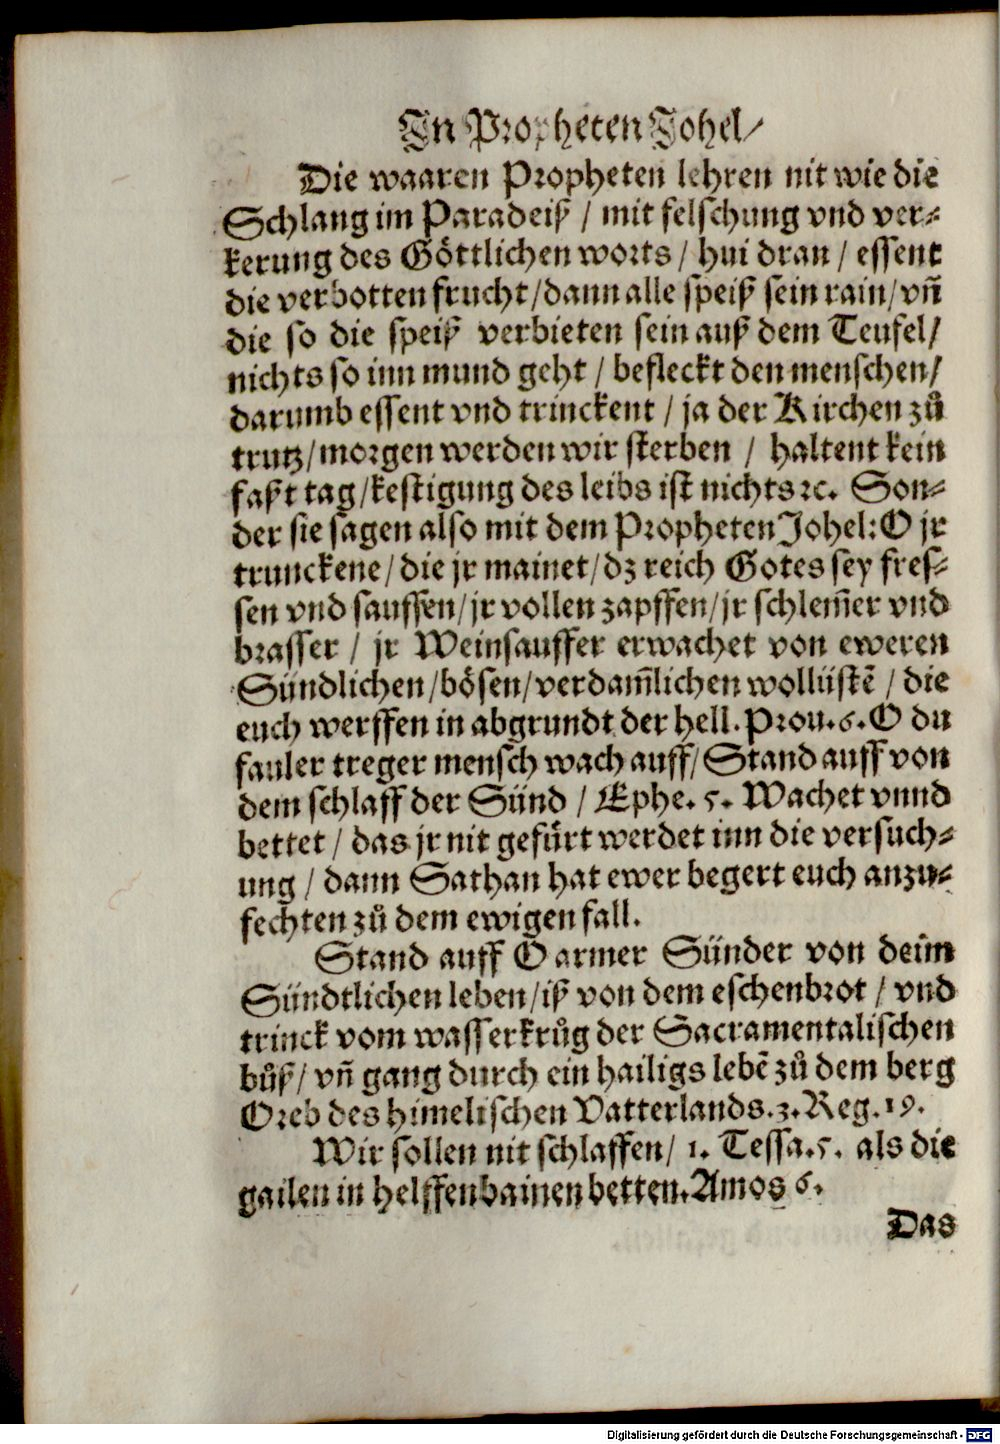 In Propheten Johel/
Die waaren Propheten lehren nit wie die
Schlang im Paradeiß / mit felschung vnd ver⸗
kerung des Göttlichen worts / hui dran / essent
die verbotten frucht/dann alle speiß sein rain/vñ
die so die speiß verbieten sein auß dem Teufel/
nichts so inn mund geht / befleckt den menschen/
darumb essent vnd trinckent / ja der Kirchen zů
trutz/morgen werden wir sterben / haltent kein
faßt tag/kestigung des leibs ist nichts ꝛc. Son⸗
der sie sagen also mit dem Propheten Johel: O jr
trunckene/die jr mainet/dz reich Gotes sey fres⸗
sen vnd sauffen/jr vollen zapffen/jr schlem̃er vnd
brasser / jr Weinsauffer erwachet von eweren
Sündlichen/bösen/verdam̃lichen wollüstẽ / die
euch werffen in abgrundt der hell. Prou. 6. O du
fauler treger mensch wach auff/Stand auff von
dem schlaff der Sünd / Ephe. 5. Wachet vnnd
bettet / das jr nit gefürt werdet inn die versuch⸗
ung / dann Sathan hat ewer begert euch anzu⸗
fechten zů dem ewigen fall.
Stand auff O armer Sünder von deim
Sündtlichen leben/iß von dem eschenbrot / vnd
trinck vom wasserkrůg der Sacramentalischen
bůß/ vñ gang durch ein hailigs lebẽ zů dem berg
Oreb des himelischen Vatterlands. 3. Reg. 19.
Wir sollen nit schlaffen/ 1. Tessa. 5. als die
gailen in helffenbainen betten. Amos 6.
Das
Digitalisierung gefördert durch die Deutsche Forschungsgemeinschaft - DFG